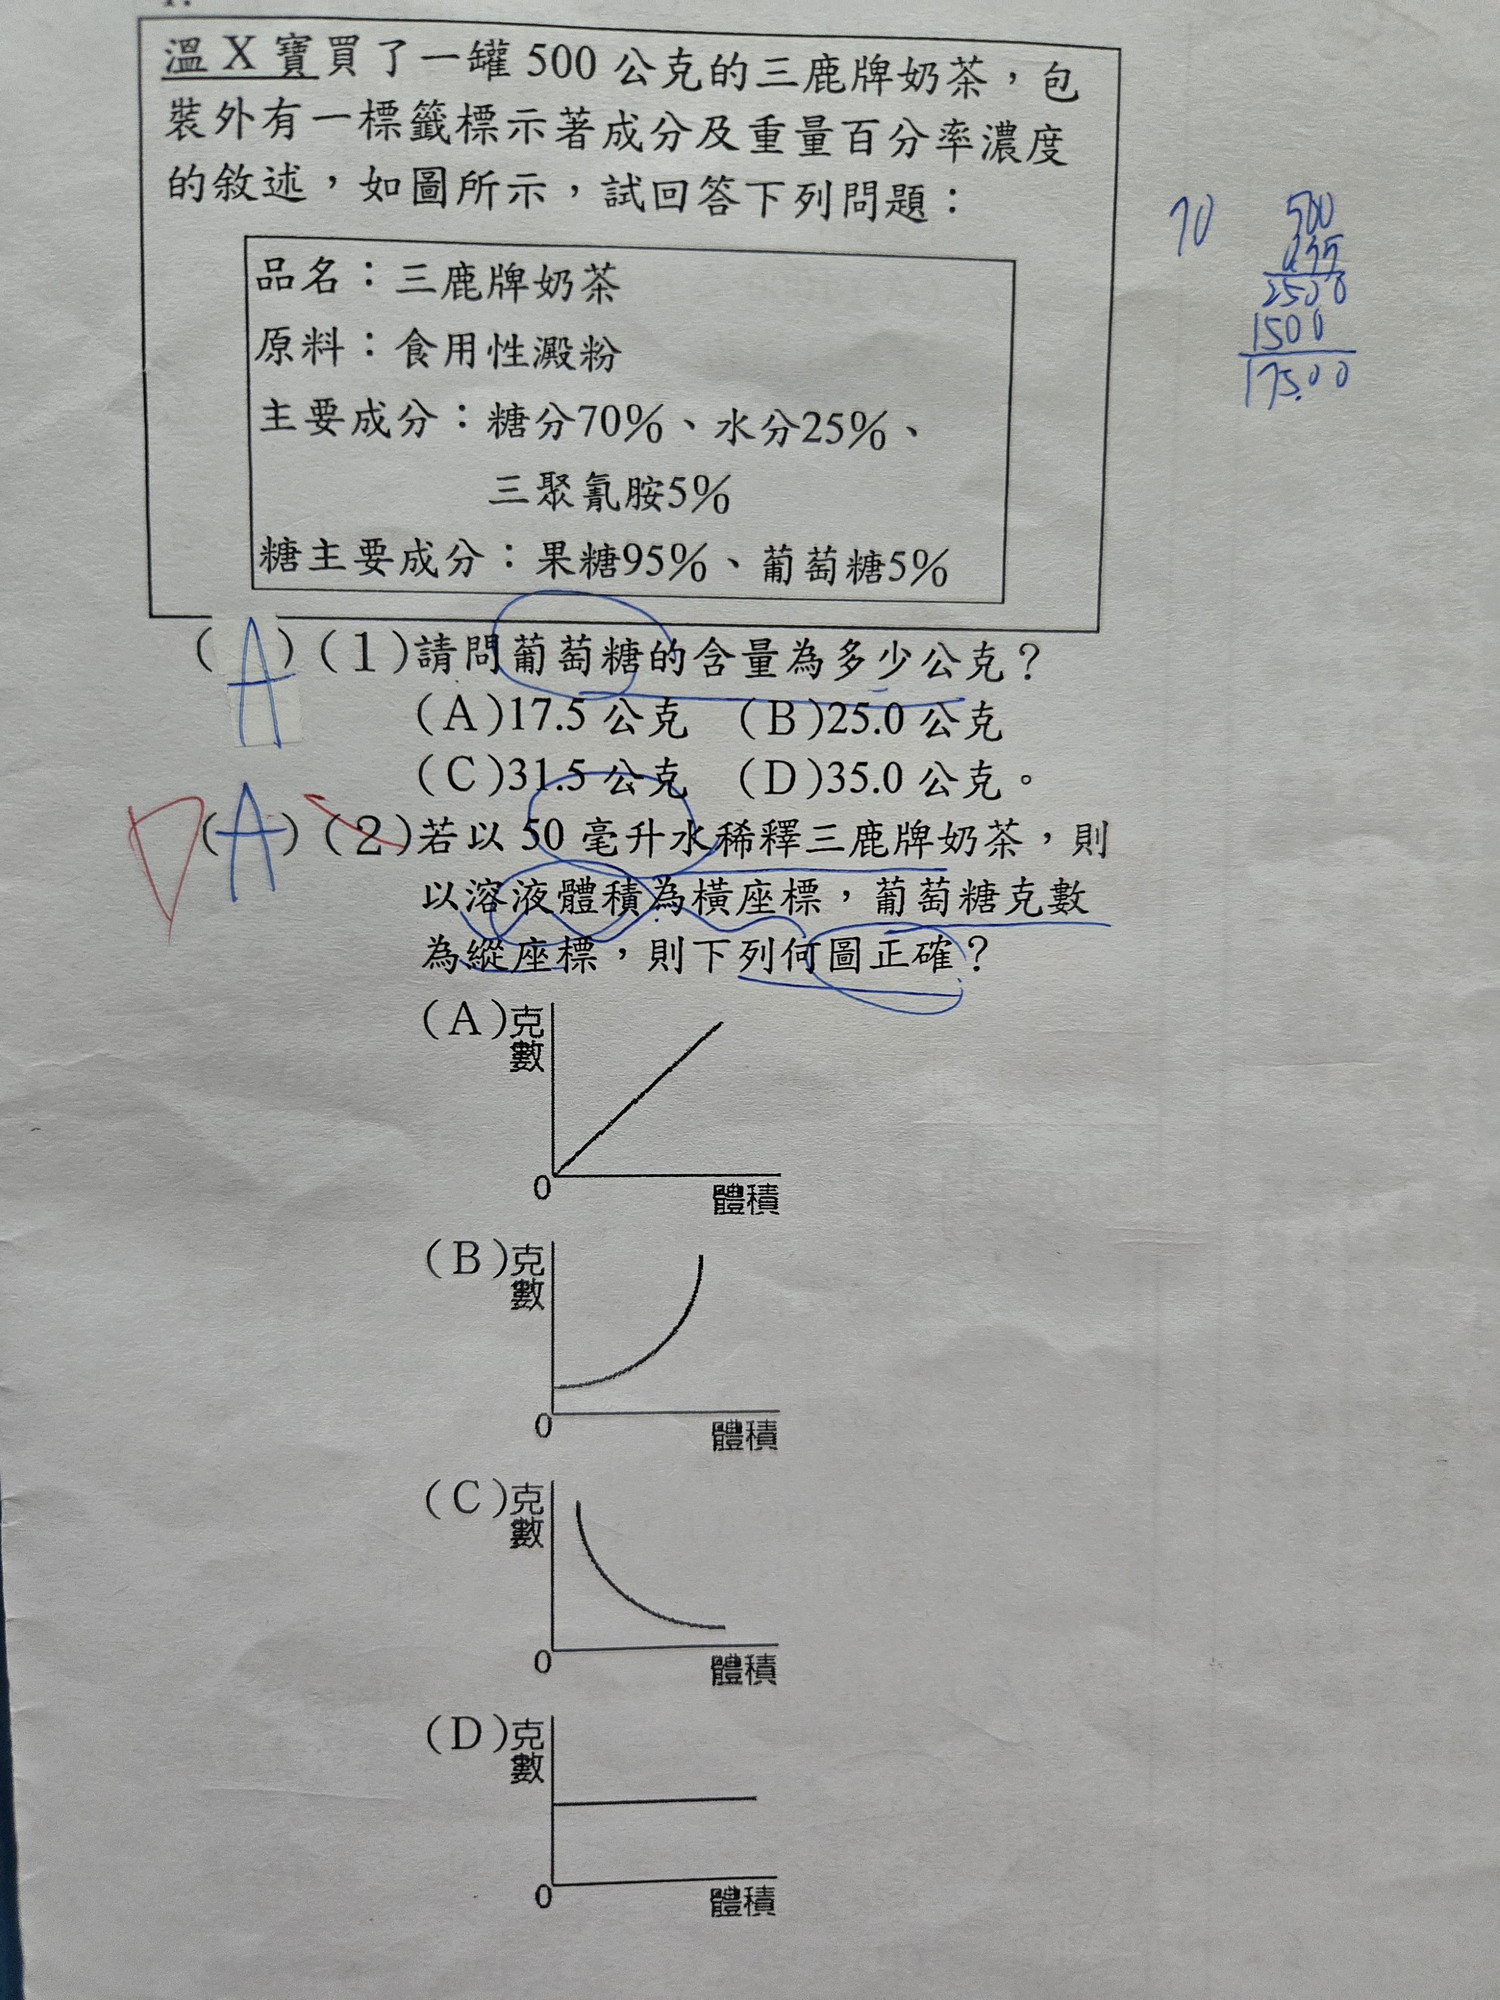 溫X寶買了一罐500公克的三鹿牌奶茶，包
裝外有一標籤標示著成分及重量百分率濃度
的敘述，如圖所示，試回答下列問題：
品名：三鹿牌奶茶
原料：食用性澱粉
主要成分：糖分70%、水分25%、
三聚氰胺5%
糖主要成分：果糖95%、葡萄糖5%
70
500
2500
1500
17500
(A)(1)請問葡萄糖的含量為多少公克？
(A)17.5公克 (B)25.0公克
(C)31.5公克 (D)35.0公克。
D
(A)(2)若以50毫升水稀釋三鹿牌奶茶，則
以溶液體積為橫座標，葡萄糖克數
為縱座標，則下列何圖正確？
(A)克數
0 體積
(B)克數
0 體積
(C)克數
0 體積
(D)克數
0 體積